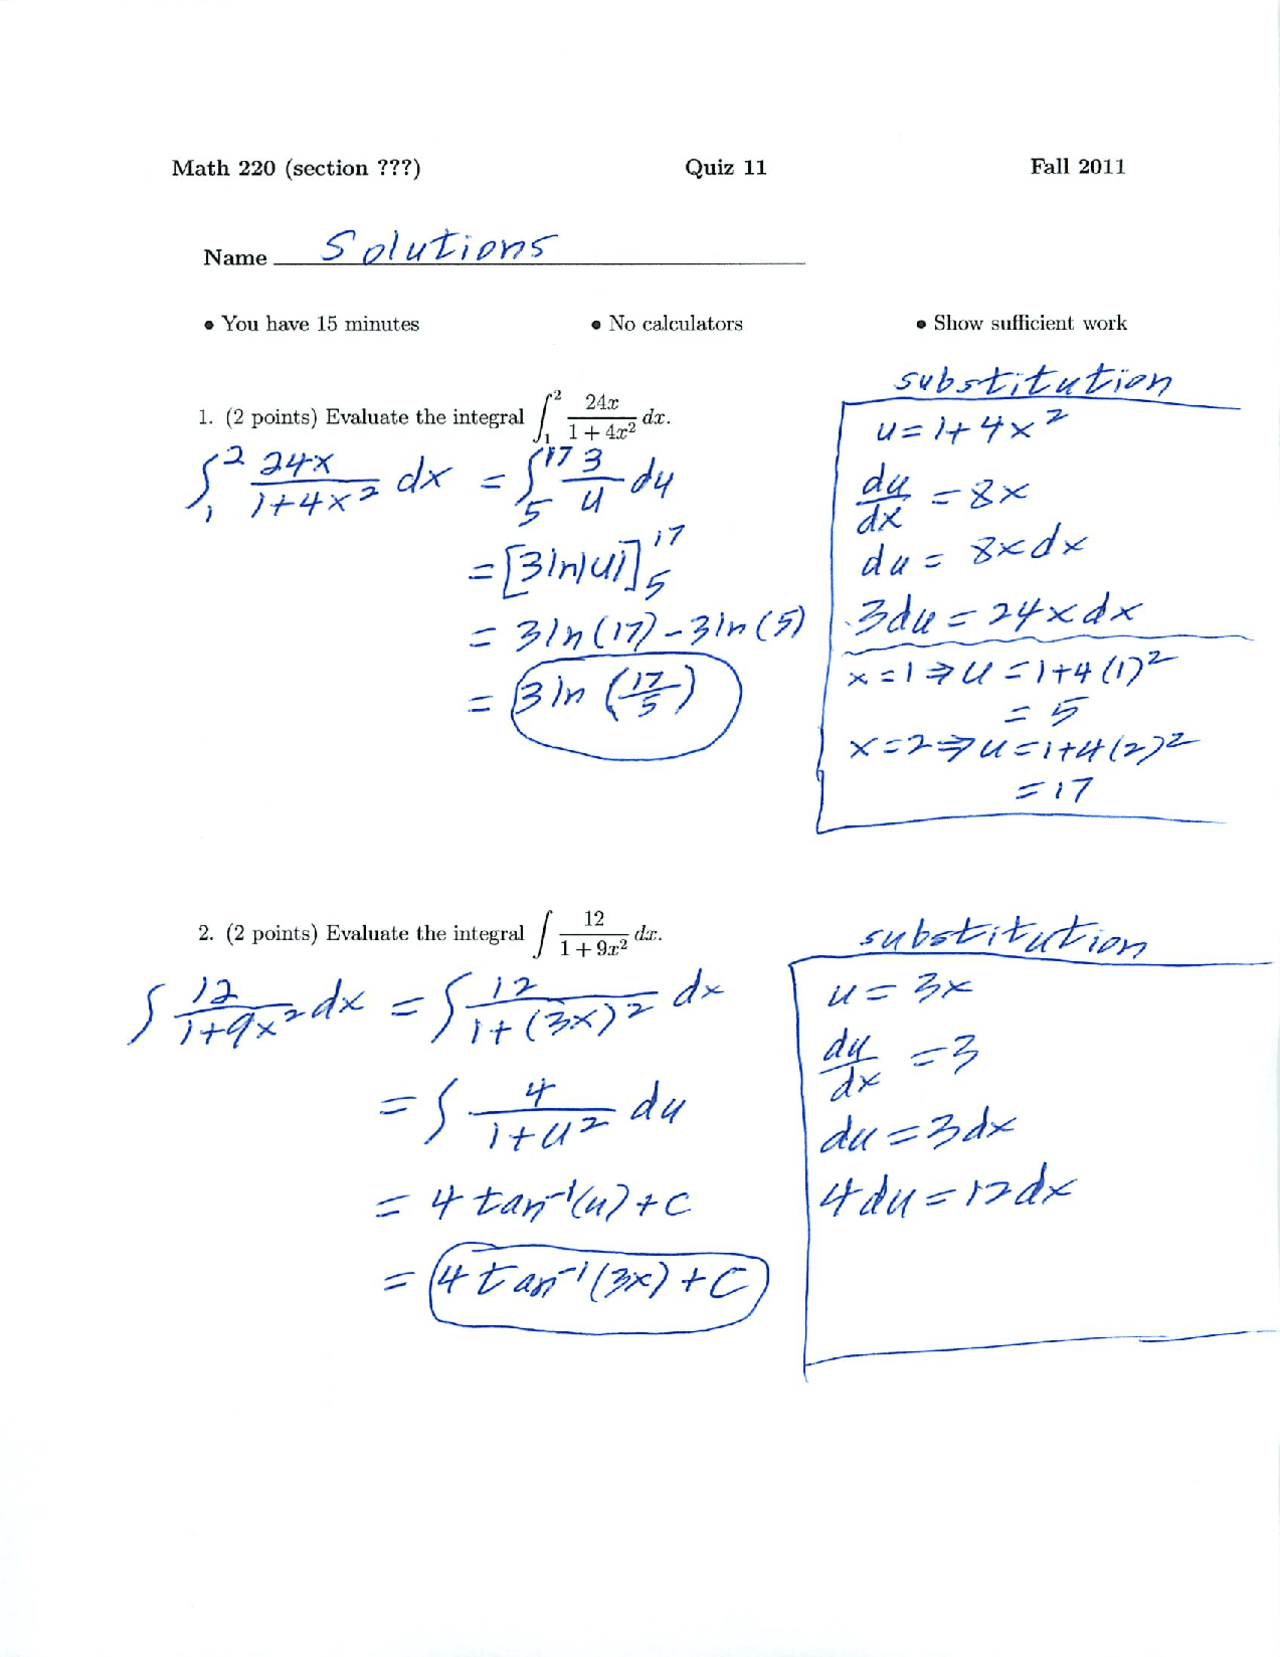 Math 220 (section ???) Quiz 11 Fall 2011
Name Solutions
• You have 15 minutes • No calculators • Show sufficient work
1. (2 points) Evaluate the integral ∫_1^2 24x/(1+4x²) dx.
∫_1^2 24x/(1+4x²) dx = ∫_5^17 3/u du
= [3ln|u|]_5^17
= 3ln(17)-3ln(5)
= 3ln(17/5)
substitution
u=1+4x²
du/dx = 8x
du = 8xdx
3du = 24xdx
x=1⇒u=1+4(1)²
= 5
x=2⇒u=1+4(2)²
=17
2. (2 points) Evaluate the integral ∫ 12/(1+9x²) dx.
∫ 12/(1+9x²) dx = ∫ 12/(1+(3x)²) dx
= ∫ 4/(1+u²) du
= 4 tan⁻¹(u)+C
= 4 tan⁻¹(3x)+C
substitution
u= 3x
du/dx =3
du=3dx
4du=12dx